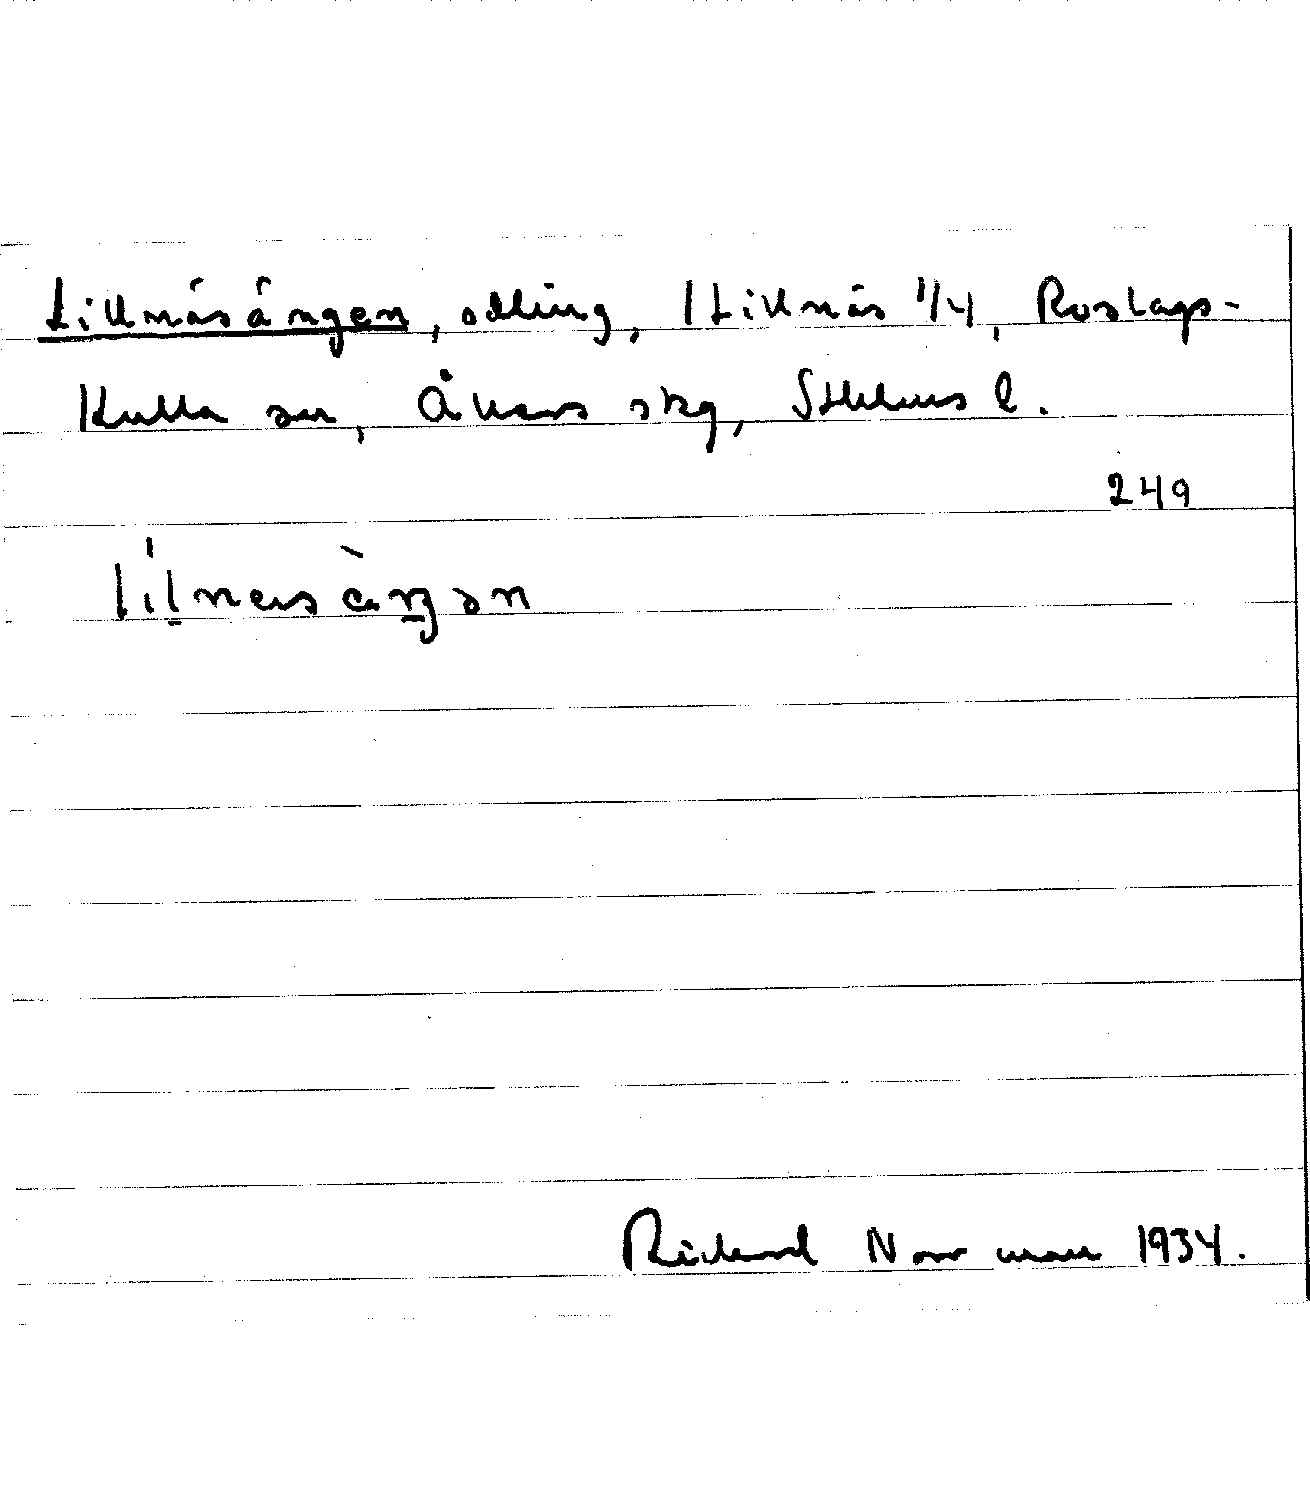 Lillnäsängen, odling, 1 Lillnäs 1/4, Roslags-
Kulla sn, Åkers skg, Sthlms l.
249
Richard Norrman 1934.